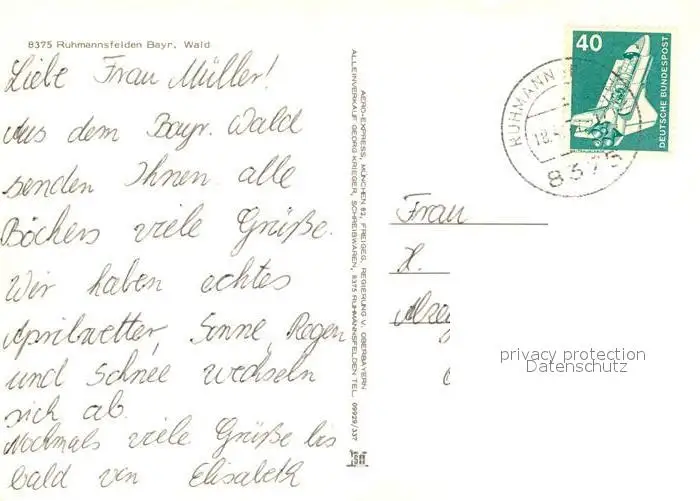 8375 Ruhmannsfelden Bayr. Wald
Liebe Frau Müller!
Aus dem Bayr. Wald
senden Ihnen alle
Böckers viele Grüße.
Wir haben echtes
Aprilwetter, Sonne, Regen
und Schnee wechseln
sich ab.
Nochmals viele Grüße bis
bald von Elisabeth
AERO-EXPRESS, MÜNCHEN 82, FREIGEG. REGIERUNG V. OBERBAYERN
ALLEINVERKAUF GEORG KRIEGER, SCHREIBWAREN, 8375 RUHMANNSFELDEN TEL. 09929/337
40
DEUTSCHE BUNDESPOST
RUHMANN
18.
8375
Frau
H.
privacy protection
Datenschutz